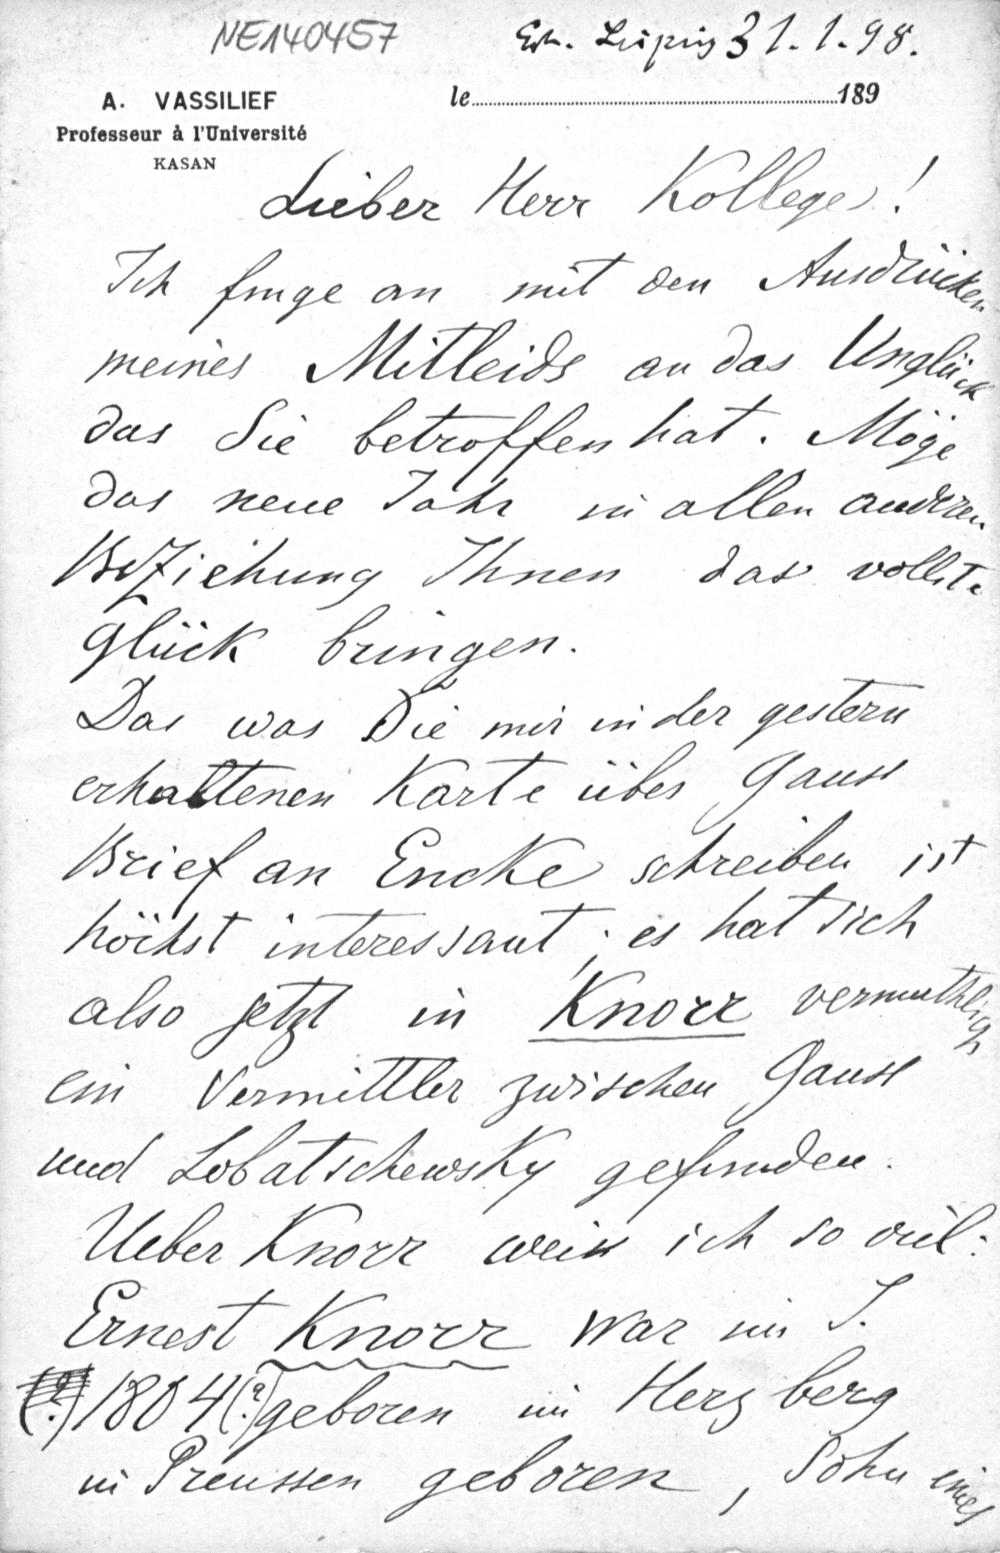 NE140457
Erh. Leipzig 31.1.98.
A. VASSILIEF
le 189
Professeur à l'Université
KASAN
Lieber Herr Kollege!
Ich fange an mit den Ausdrücken
meines Mitleids an das Unglück
das Sie betroffen hat. Möge
das neue Jahr in allen anderen
Beziehung Ihnen das vollste
Glück bringen.
Das was Die mir in der gestern
erhaltenen Karte über Gauss
Brief an Encke schreiben ist
höchst interessant; es hat sich
also jetzt in Knorr vermuthlich
ein Vermittler zwischen Gauss
und Lobatschewsky gefunden.
Ueber Knorr weiss ich so viel:
Ernest Knorr war im J.
(?) 1804 (?) geboren in Herzberg
in Preussen geboren, Sohn eines